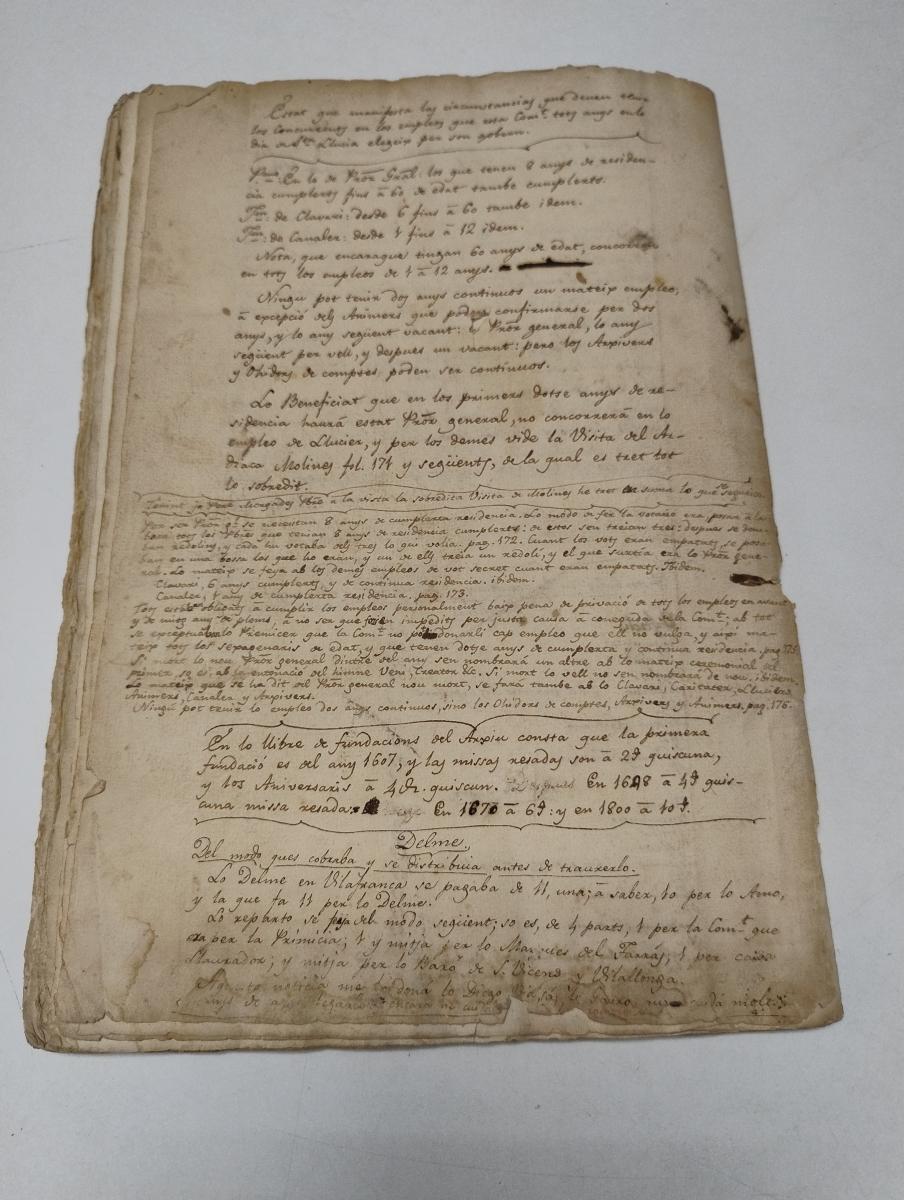 Estat que manifesta las circunstancias que deuen tenir
los concurrents en los empleos que esta Comt. tots anys en lo
dia de Sta. Llucia elegeix per son gobern.
Pmo. En lo de Pror. Gral. los que tenen 8 anys de residen-
cia cumplerts fins á 60 de edat tambe cumplerts.
Itm: de Clavari: desde 6 fins á 60 tambe idem.
Itm: de Canaler: desde 1 fins á 12 idem.
Nota, que encaraque tingan 60 anys de edat, concorren
en tots los empleos de 1 á 12 anys.
Ningu pot tenir dos anys continuos un mateix empleo,
á excepció dels Animers que poden confirmarse per dos
anys, y lo any següent vacant: y Pror general, lo any
següent per vell, y despues un vacant: pero los Arxivers
y Ohidors de comptes poden ser continuos.
Lo Beneficiat que en los primers dotse anys de re-
sidencia haurá estat Pror general, no concorrerá en lo
empleo de Llucier, y per los demes vide la Visita del Ar-
diaca Molines fol. 171 y següents, de la qual es tret tot
lo sobredit.
Pbre á la vista la sobredita Visita de Molines he tret en suma lo que segueix.
Per ser Pror gl. se necesitan 8 anys de cumplerta residencia. Lo modo de fer la votacio era, posar á la
bossa tots los Pbres que tenian 8 anys de residencia cumplerts: de estos sen treian tres: despues se dona-
ban redolins, y cada hu votaba dels tres lo qui volia. pag. 172. Cuant los vots eran empatats, se posa-
ban en una bossa los que ho eran, y un de ells treia un redolí, y el que surtia era lo Pror gene-
ral. Lo mateix se feya ab los demes empleos de vot secret cuant eran empatats. Ibidem.
Clavari, 6 anys cumplerts, y de continua residencia. ibidem.
Canaler, 1 any de cumplerta residencia. pag. 173.
Tots estan obligats á cumplir los empleos personalment baix pena de privació de tots los empleos en avant
y de mitg any de ploms, á no ser que fosen impedits per justa causa á coneguda de la Comt.; ab tot
se exceptua lo Premicer que la Comt. no pot donarli cap empleo que ell no vulga, y aixi ma-
teix tots los sepagenaris de edat, y que tenen dotze anys de cumplerta y continua residencia. pag. 175
Si mort lo nou Pror general dintre del any sen nombrará un altre ab lo mateix ceremonial del
primer, so es, ab la entonació del himne Veni, Creator &c. Si mort lo vell no sen nombrará de nou. ibidem
Lo mateix que se ha dit del Pror general nou mort, se fará tambe ab lo Clavari, Caritater, Llucier,
Animers, Canaler y Arxivers.
Ningú pot tenir lo empleo dos anys continuos, sino los Ohidors de comptes, Arxivers y Animers. pag. 176.
En lo llibre de fundacions del Arxiu consta que la primera
fundació es del any 1607, y las missas resadas son á 2s quiscuna,
y los Aniversaris á 4 quiscun. Despues En 1628 á 4s quis-
cuna missa resada. En 1670 á 6s: y en 1800 á 10s.
Delme.
Del modo ques cobraba y se distribuia antes de traurerlo.
Lo Delme en Vilafranca se pagaba de 11, una; á saber, 10 per lo Amo,
y la que fa 11 per lo Delme.
Lo reparto se feja del modo següent; so es, de 4 parts, 1 per la Comt. que
era per la Primicia; 1 y mitja per lo Marques del Farrás; 1 per cada
Llaurador; y mitja per lo Baró de S. Vicens y Vilallonga.
Aquesta noticia me la doná lo